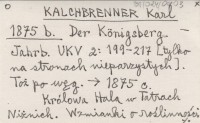 KALCHBRENNER Karl
1875 b. Der Königsberg.
Jahrb. UKV 2: 199-217 [tylko
na stronach nieparzystych].
Toż po węg. → 1875 a.
Królowa Hala w Tatrach
Niżnich. Wzmianki o roślinności